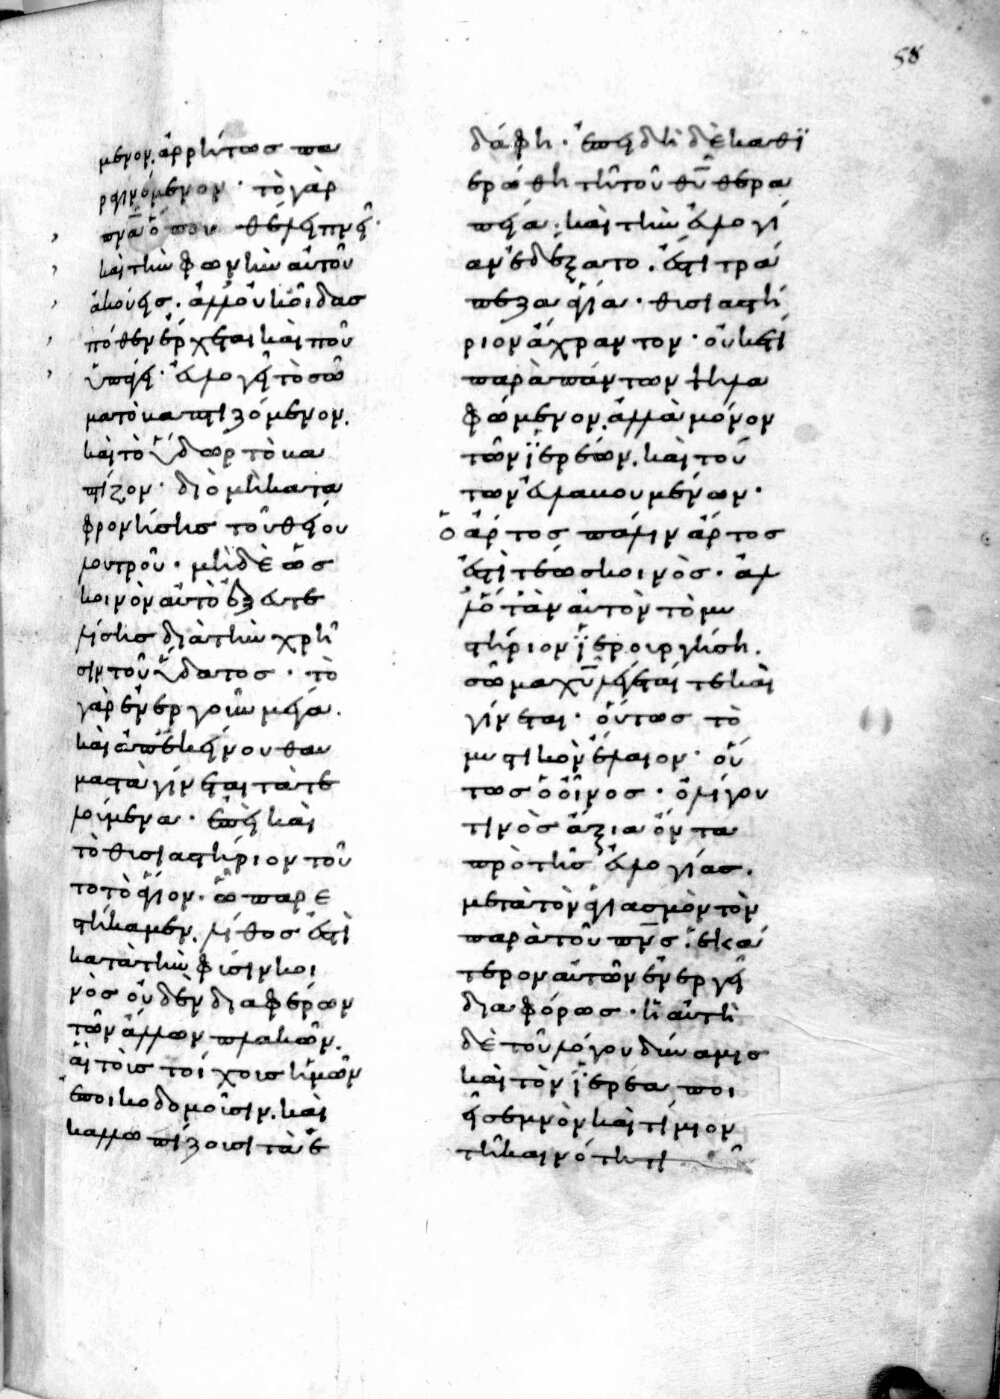 58
μενον. ἀρρήτως πα
ραγινόμενον· τὸ γὰρ
πνᾶ ὅπου θέλει πνεῖ·
καὶ τὴν φωνὴν αὐτοῦ
ἀκούεις. ἀλλ' οὐκ οἶδας
πόθεν ἔρχεται καὶ ποῦ
ὑπάγει· εὐλογεῖ τὸ σῶ
μα τὸ βαπτιζόμενον.
καὶ τὸ ὕδωρ τὸ βα
πτίζον· διὸ μὴ κατα
φρονήσης τοῦ θείου
λουτροῦ· μηδὲ ὡς
κοινὸν αὐτὸ ἐξευτε
λίσης διὰ τὴν χρῆ
σιν τοῦ ὕδατος· τὸ
γὰρ ἐνεργοῦν μέγα.
καὶ ἀπ' ἐκείνου θαυ
μαστὰ γίνεται τὰ τε
λούμενα· ἐπεὶ καὶ
τὸ θυσιαστήριον τοῦ
το τὸ ἅγιον. ᾧ παρε
στήκαμεν. λίθος ἐστὶ
κατὰ τὴν φύσιν κοι
νὸς οὐδὲν διαφέρων
τῶν ἄλλων πλακῶν.
αἳ τοὶς τοίχοις ἡμῶν
ἐποικοδομοῦσιν. καὶ
καλλωπίζουσι τὰ ἐ
δάφη· ἐπειδὴ δὲ καθϊ
ερώθη τῆ τοῦ θῦ θερα
πεία· καὶ τὴν εὐλογί
αν ἐδέξατο. ἐστὶ τρά
πεζα ἁγία· θυσιαστή
ριον ἄχραντον· οὐκέτι
παρὰ πάντων ψηλα
φώμενον. ἀλλὰ μόνον
τῶν ϊερέων. καὶ τού
των εὐλαβουμένων·
ὁ ἄρτος πάλιν ἄρτος
ἐστὶ τέως κοινὸς· ἀλ
λ' ὅταν αὐτὸν τὸ μυ
στήριον ϊερουργήση.
σῶμα χῦ λέγεταί τε καὶ
γίνεται· οὕτως τὸ
μυστικὸν ἔλαιον· οὕ
τως ὁ οἶνος· ὀλίγου
τινὸς ἄξια ὄντα
πρὸ τῆς εὐλογίας.
μετὰ τὸν ἁγιασμὸν τὸν
παρὰ τοῦ πνς. ἑκά
τερον αὐτῶν ἐνεργεῖ
διαφόρως· ἡ αὐτὴ
δὲ τοῦ λόγου δύναμις
καὶ τὸν ϊερέα ποι
εῖ σεμνὸν καὶ τίμιον
τῆ καινότητι